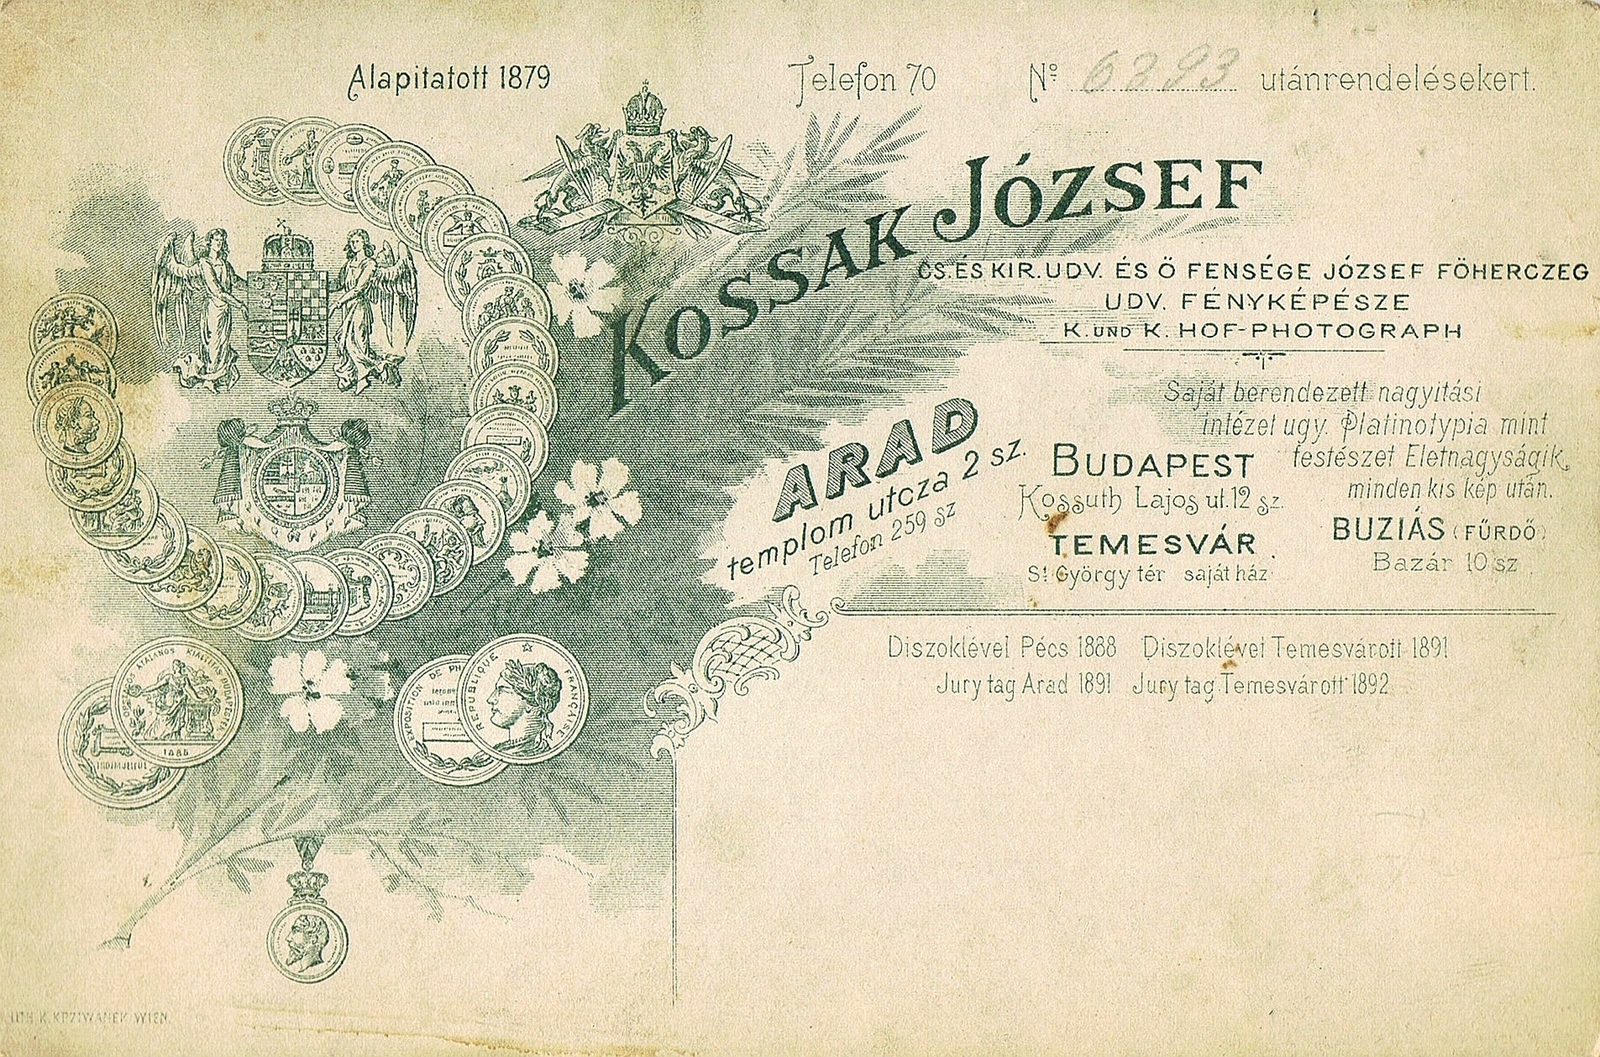 Alapitatott 1879
Telefon 70
Nº 6293 utánrendelésekert.
KOSSAK JÓZSEF
CS. ÉS KIR. UDV. ÉS Ő FENSÉGE JÓZSEF FŐHERCZEG
UDV. FÉNYKÉPÉSZE
K. UND K. HOF-PHOTOGRAPH
Saját berendezett nagyitási
intézet ugy. Platinotypia mint
festészet Eletnagyságik,
minden kis kép után.
ARAD
templom utcza 2 sz.
Telefon 259 sz
BUDAPEST
Kossuth Lajos ut. 12 sz.
TEMESVÁR.
Sẗ György tér saját ház
BUZIÁS (FŰRDŐ)
Bazár 10 sz
Diszoklével Pécs 1888 Diszoklével Temesvárott 1891
Jury tag Arad 1891 Jury tag Temesvárott 1892
1885
EXPOSITION DE PH
REPUBLIQUE FRANÇAISE
LITH. K. KRZIWANEK WIEN.